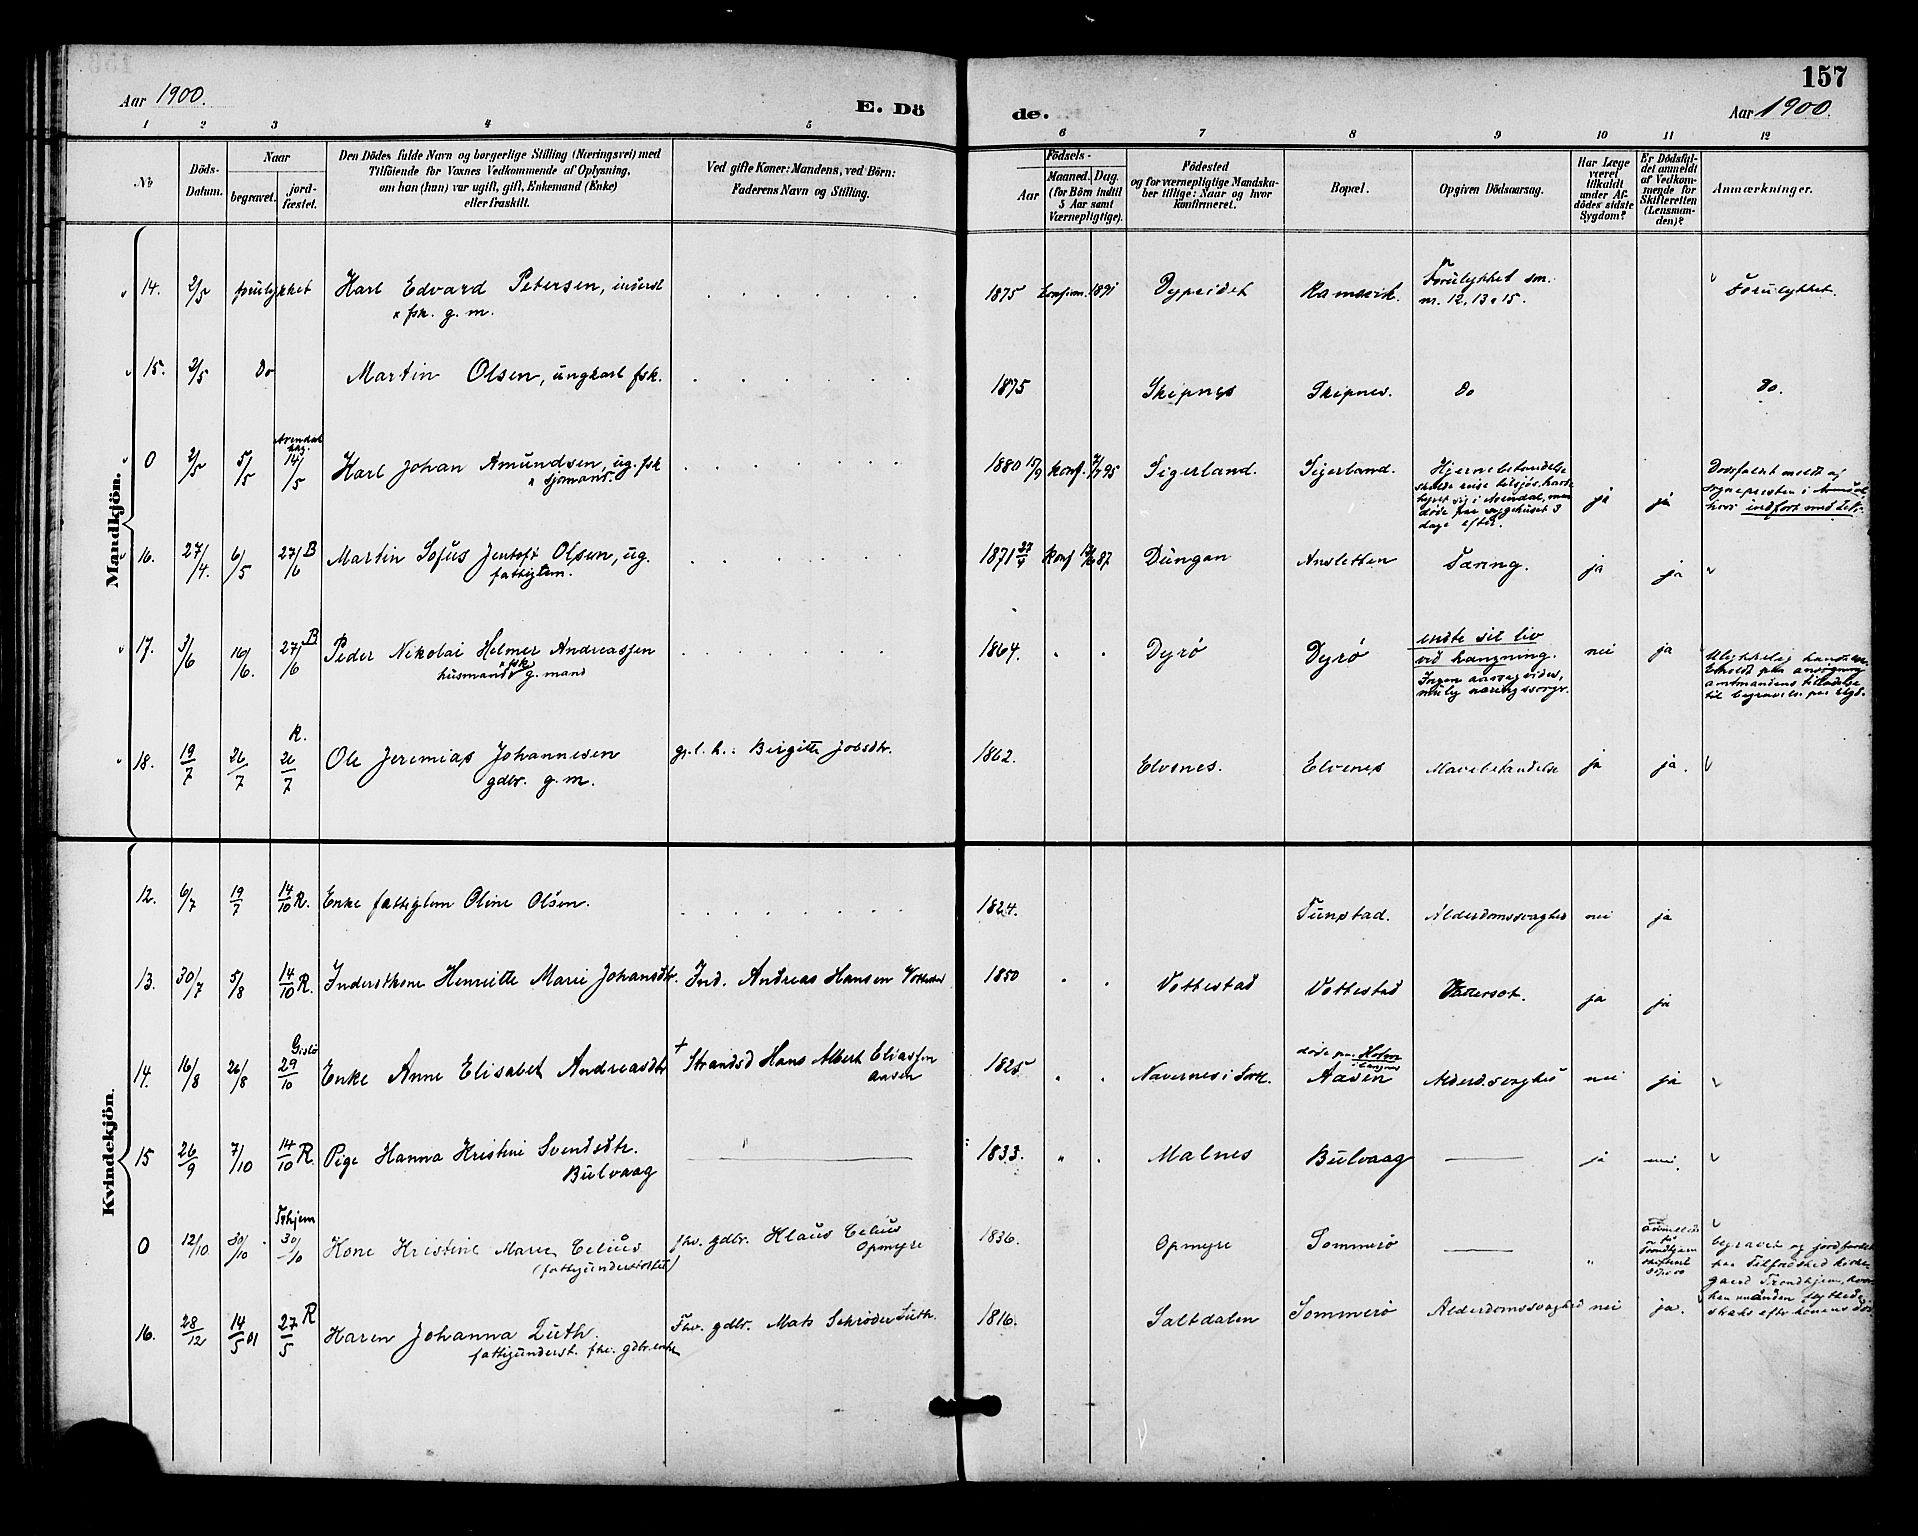 157
Aar 1900.
E. Dö
de.
Aar 1900.
1 2 3 4 5 6 7 8 9 10 11 12
No
Döds-
Datum.
Naar
begravet.
jord-
fæstet.
Den Dödes fulde Navn og borgerlige Stilling (Næringsvei) med
Tilföiende for Voxnes Vedkommende af Oplysning,
om han (hun) var ugift, gift, Enkemand (Enke)
eller fraskilt.
Ved gifte Koner: Mandens, ved Börn:
Faderens Navn og Stilling.
Födsels-
Aar
Maaned. Dag.
(for Börn indtil
5 Aar samt
Værnepligtige).
Födested
og for værnepligtige Mandska-
ber tillige: Naar og hvor
konfirmeret.
Bopæl.
Opgiven Dödsaarsag.
Har Læge
været
tilkaldt
under Af-
dödes sidste
Sygdom?
Er Dödsfal-
det anmeldt
af Vedkom-
mende for
Skifteretten
(Lensman-
den)?
Anmærkninger.
Mandkjön.
14. 2/5 forulykket Karl Edvard Petersen, inderst
fsk. g. m.
1875 konfirm. 1891 Dypeidet Ramsvik. Forulykket sm.
nr. 12, 13 o 15.
Forulykket.
15. 2/5 Do Martin Olsen, ungkarl fsk. 1875 Skipnes Skipnes. do do.
0 2/5 5/5 Arendal
14/5 Karl Johan Amundsen, ug. fsk
sjømand.
1880 15/9 konf. 95 Sigerland. Sigerland. Hjernebetændelse
skulde reise tilsjøs, havde
i Arendal, men
døde paa sygehuset 3
dage efter.
ja ja
Dødsfaldet meldt af
Sognepresten i Arendal
hvor indført med
16. 27/4. 6/5 27/6 B Martin Sofus Jentoft Olsen, ug.
fattiglem.
1871 27/4 konf 87 Dungan Ansletten Tæring. ja ja
17. 3/6 16/6. 27/6 B Peder Nikolai Helmer Andreassen
husmand fsk g. mand
1864. Dyrø Dyrø endte sit liv
ved hængning.
Ingen aarsag vides,
mulig næringssorg.
nei ja
Ulykkelig
ansøgning
amtmandens tilladelse
til begravelse paa
18. 19/7 26/7 R. 26/7 Ole Jeremias Johannesen
gdbr. g. m.
gs. l. k.: Birgitte Jobsdtr.
1862. Elvenes. Elvenes Mavebetændelse ja ja.
Kvindekjön.
12. 6/7 19/7 14/10 R. Enke fattiglem Oline Olsen. 1824. Tunstad. Alderdomssvaghed nei ja
13. 30/7 5/8 14/10 R. Inderstkone Henriette Marie Johansdtr. Ind. Andreas Hansen Vottestad
1850 Vottestad Vottestad Vattersot. ja ja
14. 16/8 26/8 Gislø 29/10 Enke Anne Elisabet Andreasdtr + Strandsd Hans Albert Eliassen
Aasen
1825 Navernes i Sortl. døde paa Holm
Langenes
Aasen Alderd.svaghed nei ja
15 26/9 7/10 14/10 R. Pige Hanna Kristine Svendsdtr.
Bulvaag
1833. Malnes Bulvaag ja nei.
0 12/10 30/10 Trhjem 30/10 Kone Kristine Marie Celius
(fattigunderstøttet)
fhv. gdbr. Klaus Celius
Opmyre
1836. Opmyre Sommerø
Anmeldt
til
Trondhjem
skifteret
begravet og jordfæstet
paa Tilfredshed kirke-
gaard Trondhjem, hvor-
hen manden flyttede
straks efter konens død
16. 28/12 14/5 01 27/5 R Karen Johanna Luth.
fattigunderst. fhv. gdbr. enke
Fhv. gdbr. Mats Schrøder Luth.
1816. Saltdalen Sommerø Alderdomssvaghed nei ja.